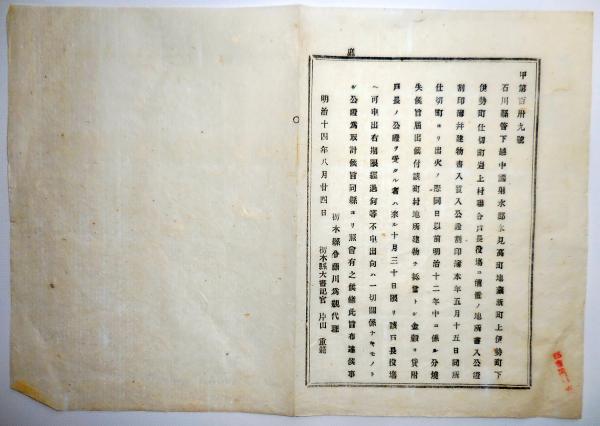 甲第百卅九號
石川縣管下越中國射水郡氷見高町地藏新町上伊勢町下
伊勢町仕切町岩上村聯合戸長役塲ニ備置ノ地所書入公證
割印簿并建物書入質入公證割印簿本年五月十五日同所
仕切町ヨリ出火ノ際同日以前明治十二年中ニ係ル分燒
失候旨届出候付該町村地所建物チ抵當トシ金穀ヲ貸附
戸長ノ公證ヲ受タル者ハ來ル十月三十日限リ該戸長役塲
ヘ可申出右期限經過何等不申出向ハ一切關係ナキモノト
シ公證爲取計候旨同縣ヨリ照會有之候條此旨布達候事
明治十四年八月廿四日
栃木縣令藤川爲親代理
栃木縣大書記官 片山 重範